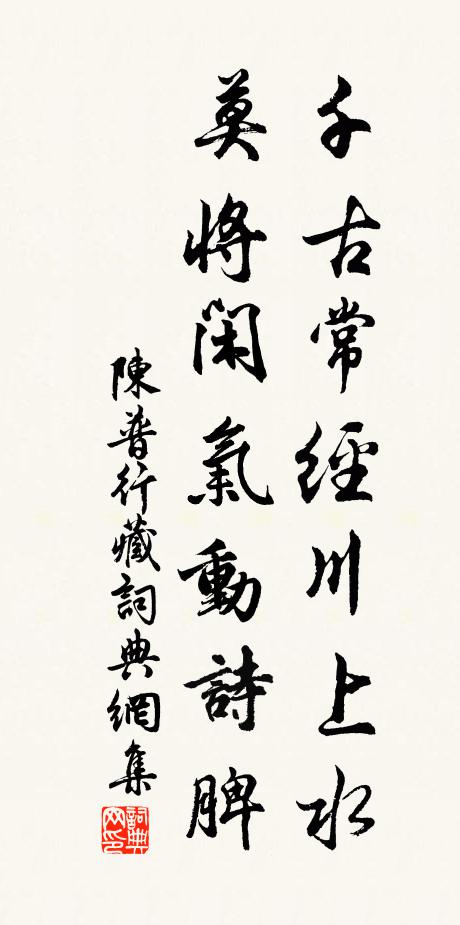 千古常經川上水
莫將閑氣動詩脾
陳普行藏詞典網集
詞典网印